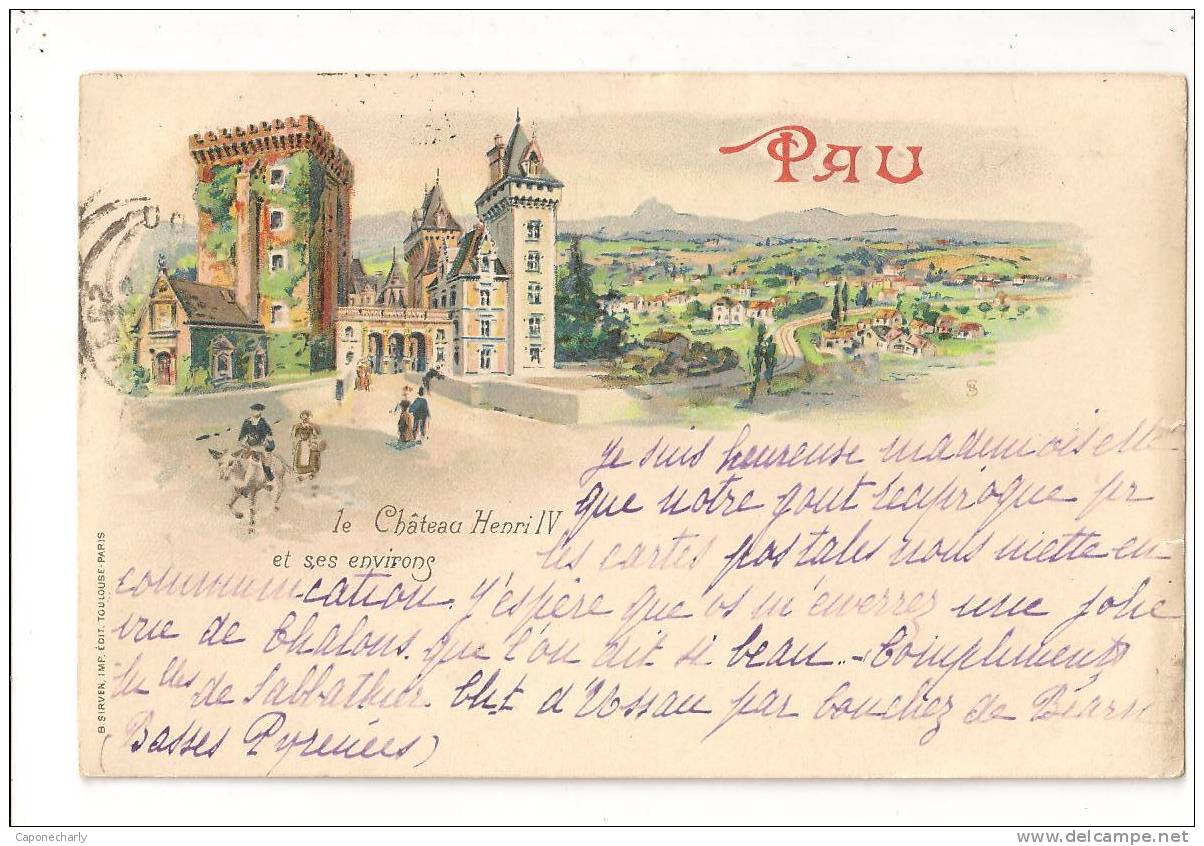 Pau
le Château Henri IV
et ses environs
B. SIRVEN, IMP. ÉDIT. TOULOUSE-PARIS
Je suis heureuse mademoiselle
que notre gout réciproque pr
les cartes postales nous mette en
communication. J'espère que vs m'enverrez une jolie
vue de Chalons. que l'on dit si beau.. Compliments
de Sabbathier Cht d'Ussau par Conchez de Béarn
(Basses Pyrenées)
Caponecharly
www.delcampe.net